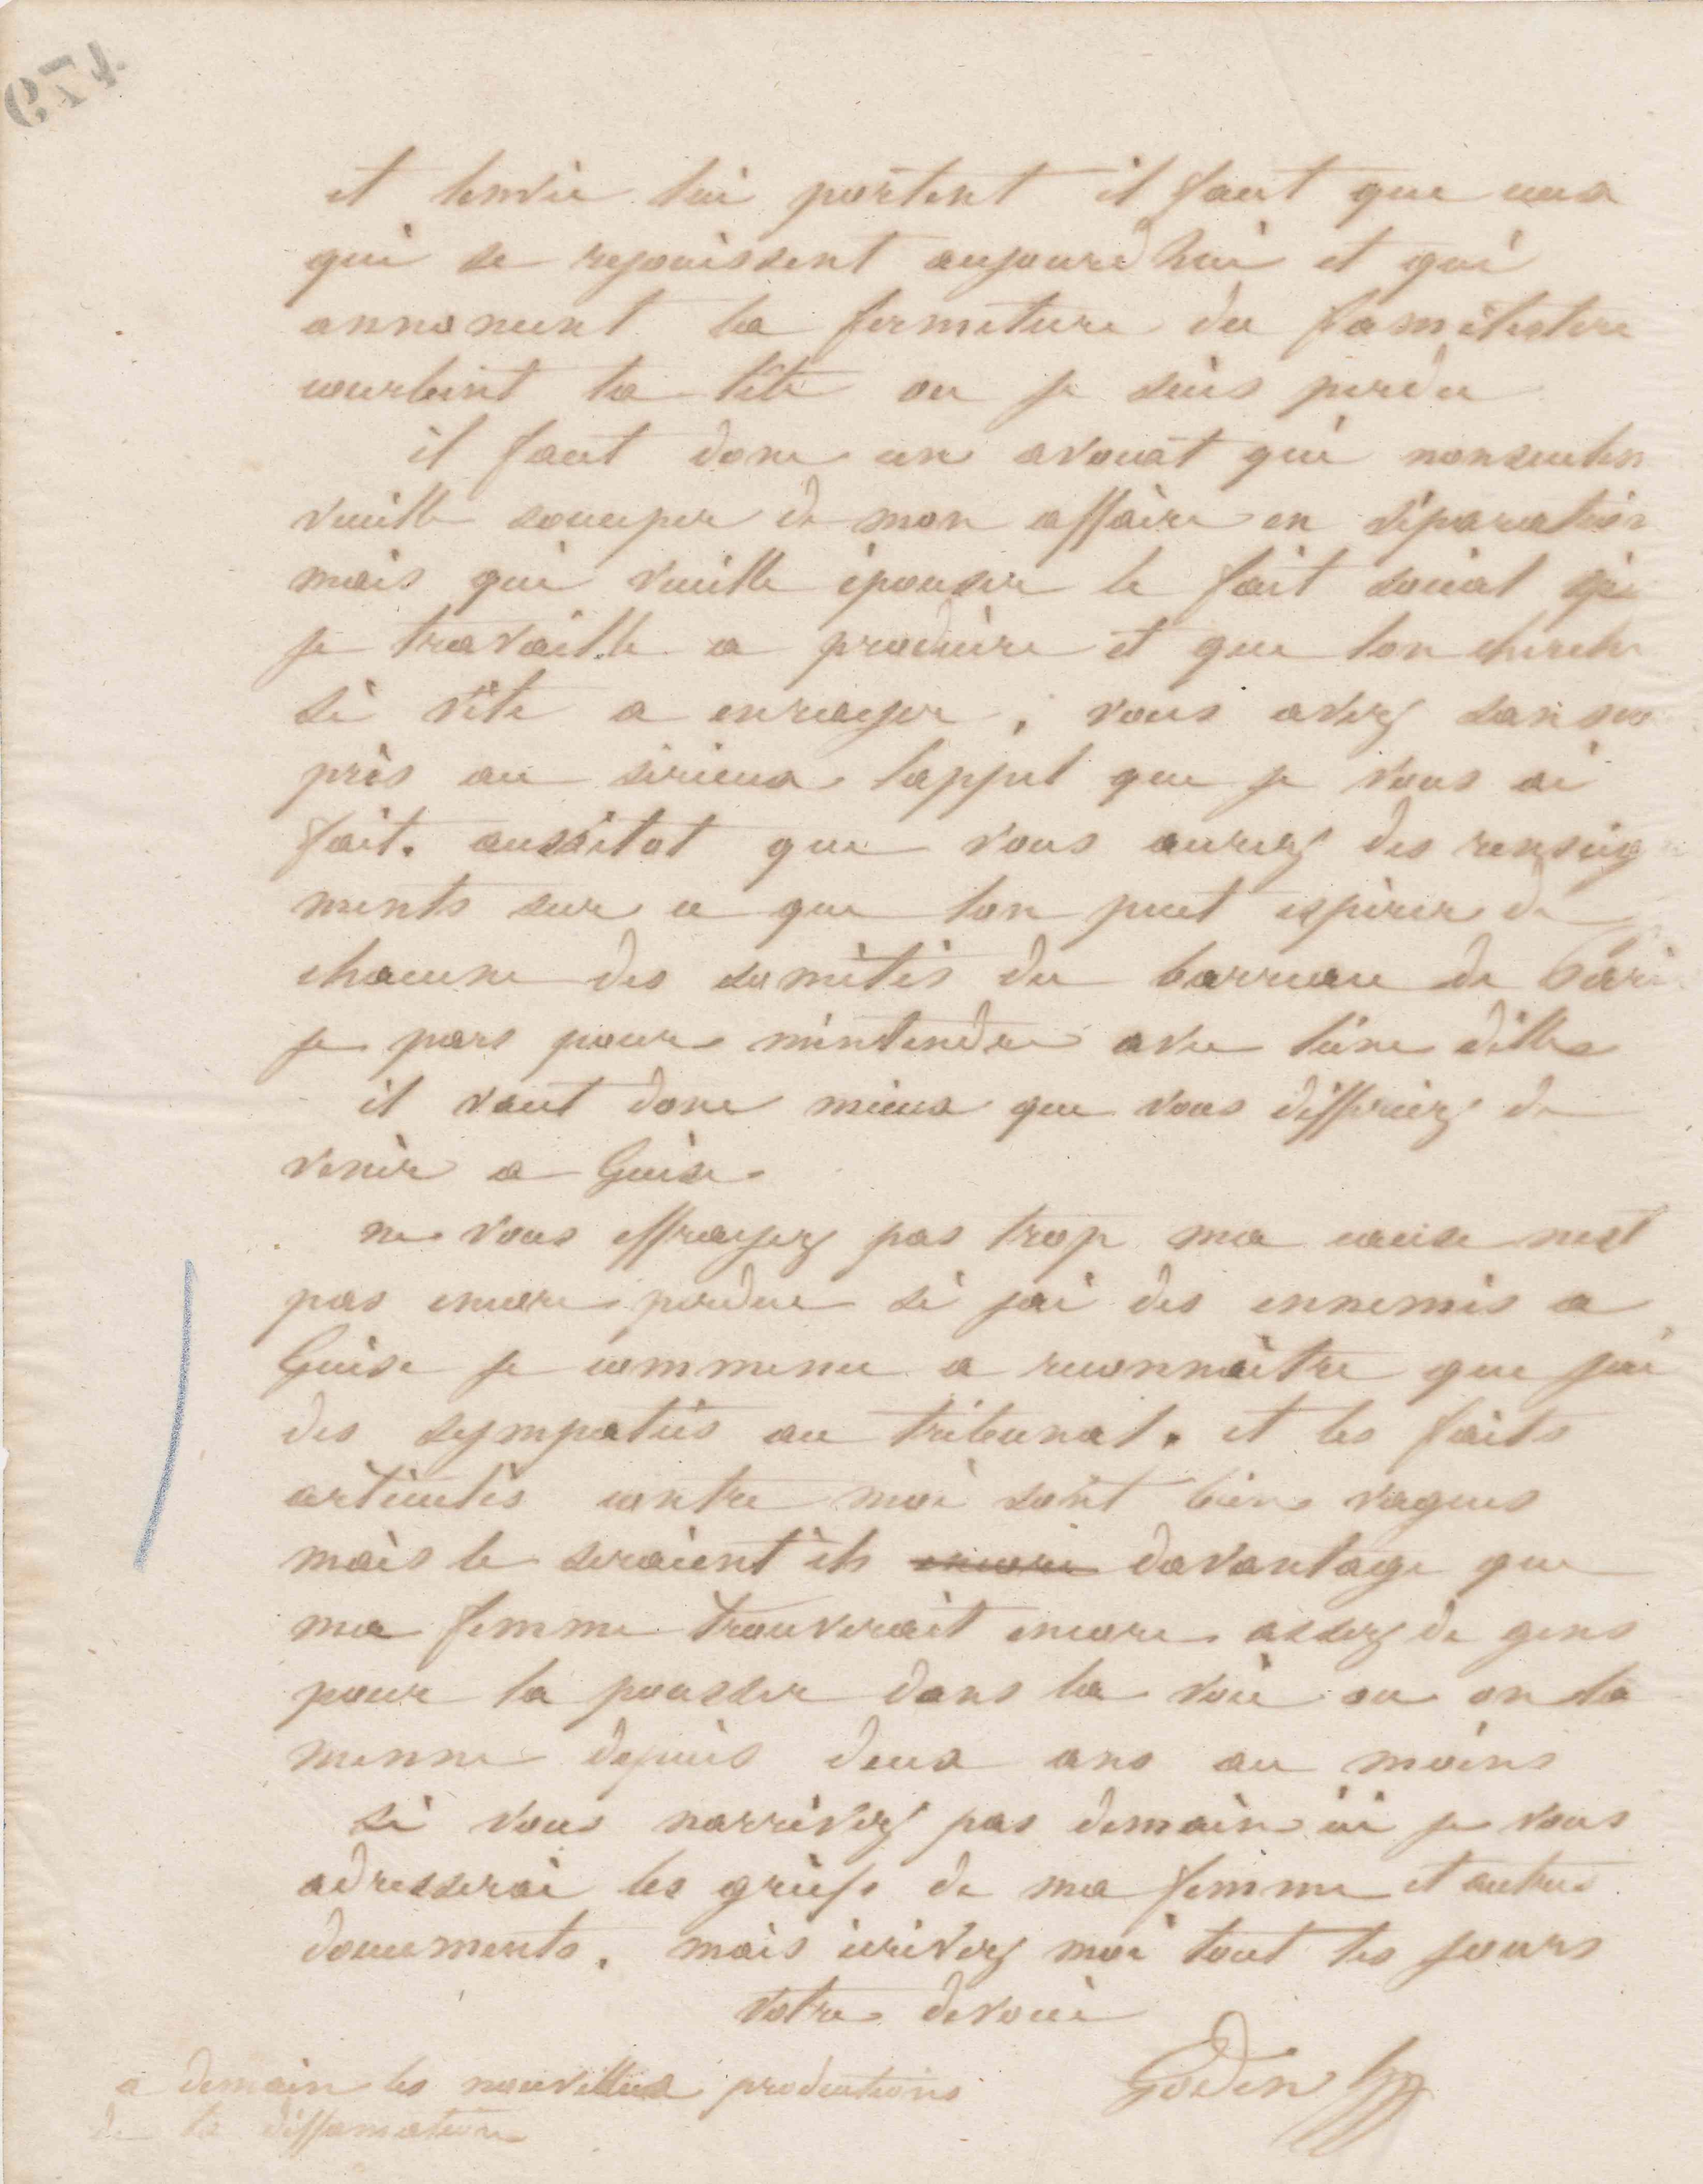 et lenvie lui portent il faut que ceux
qui se rejouissent aujourdhui et qui
annoncent la fermeture du familistere
courbent la tête ou je suis perdu
il faut donc un avocat qui nonseulem
veuille soccuper de mon affaire en séparation
mais qui veuille épouser le fait social que
je travaille a produire et que lon cherche
si vite a enrayer, vous avez sans dou
pris au sérieux lappel que je vous ai
fait. aussitot que vous aurez des renseig
ments sur ce que lon peut espérer de
chacune des somités du barreau de Pari
je pars pour mentendre avec lune delles
il vaut donc mieux que vous differiez de
venir a Guise
ne vous effrayez pas trop ma cause nest
pas encore perdue si jai des ennemis a
Guise je commence a reconnaitre que jai
des sympaties au tribunal. et les faits
articulés contre moi sont bien vagues
mais le seraient ils encore davantage que
ma femme trouverait encore assez de gens
pour la pousser dans la voie ou on la
menne depuis deux ans au moins
si vous narrivez pas demain ici je vous
adresserai les griefs de ma femme et autres
documents. mais écrivez moi tout les jours
votre devoué
Godin
a demain les nouvelles productions
de la diffamation